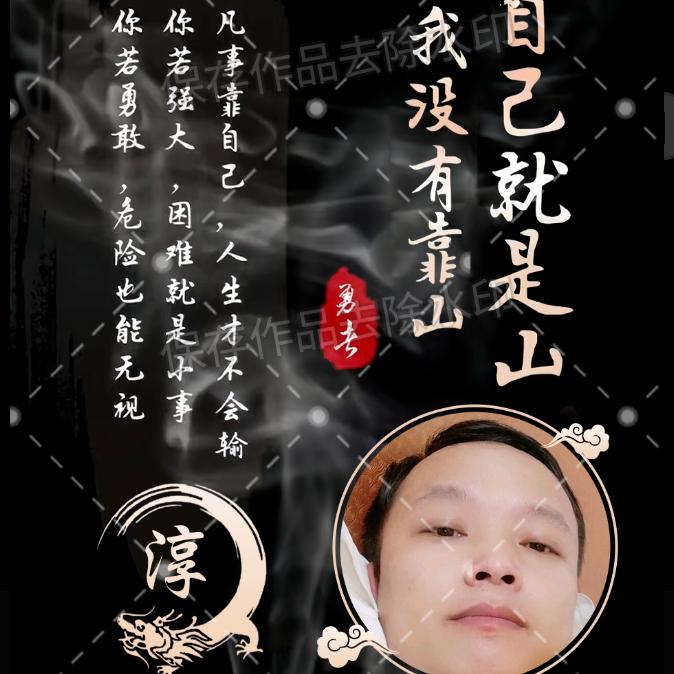 自己就是山
我没有靠山
勇者
凡事靠自己,人生才不会输
你若强大,困难就是小事
你若勇敢,危险也能无视
淳
保存作品去除水印
保存作品去除水印